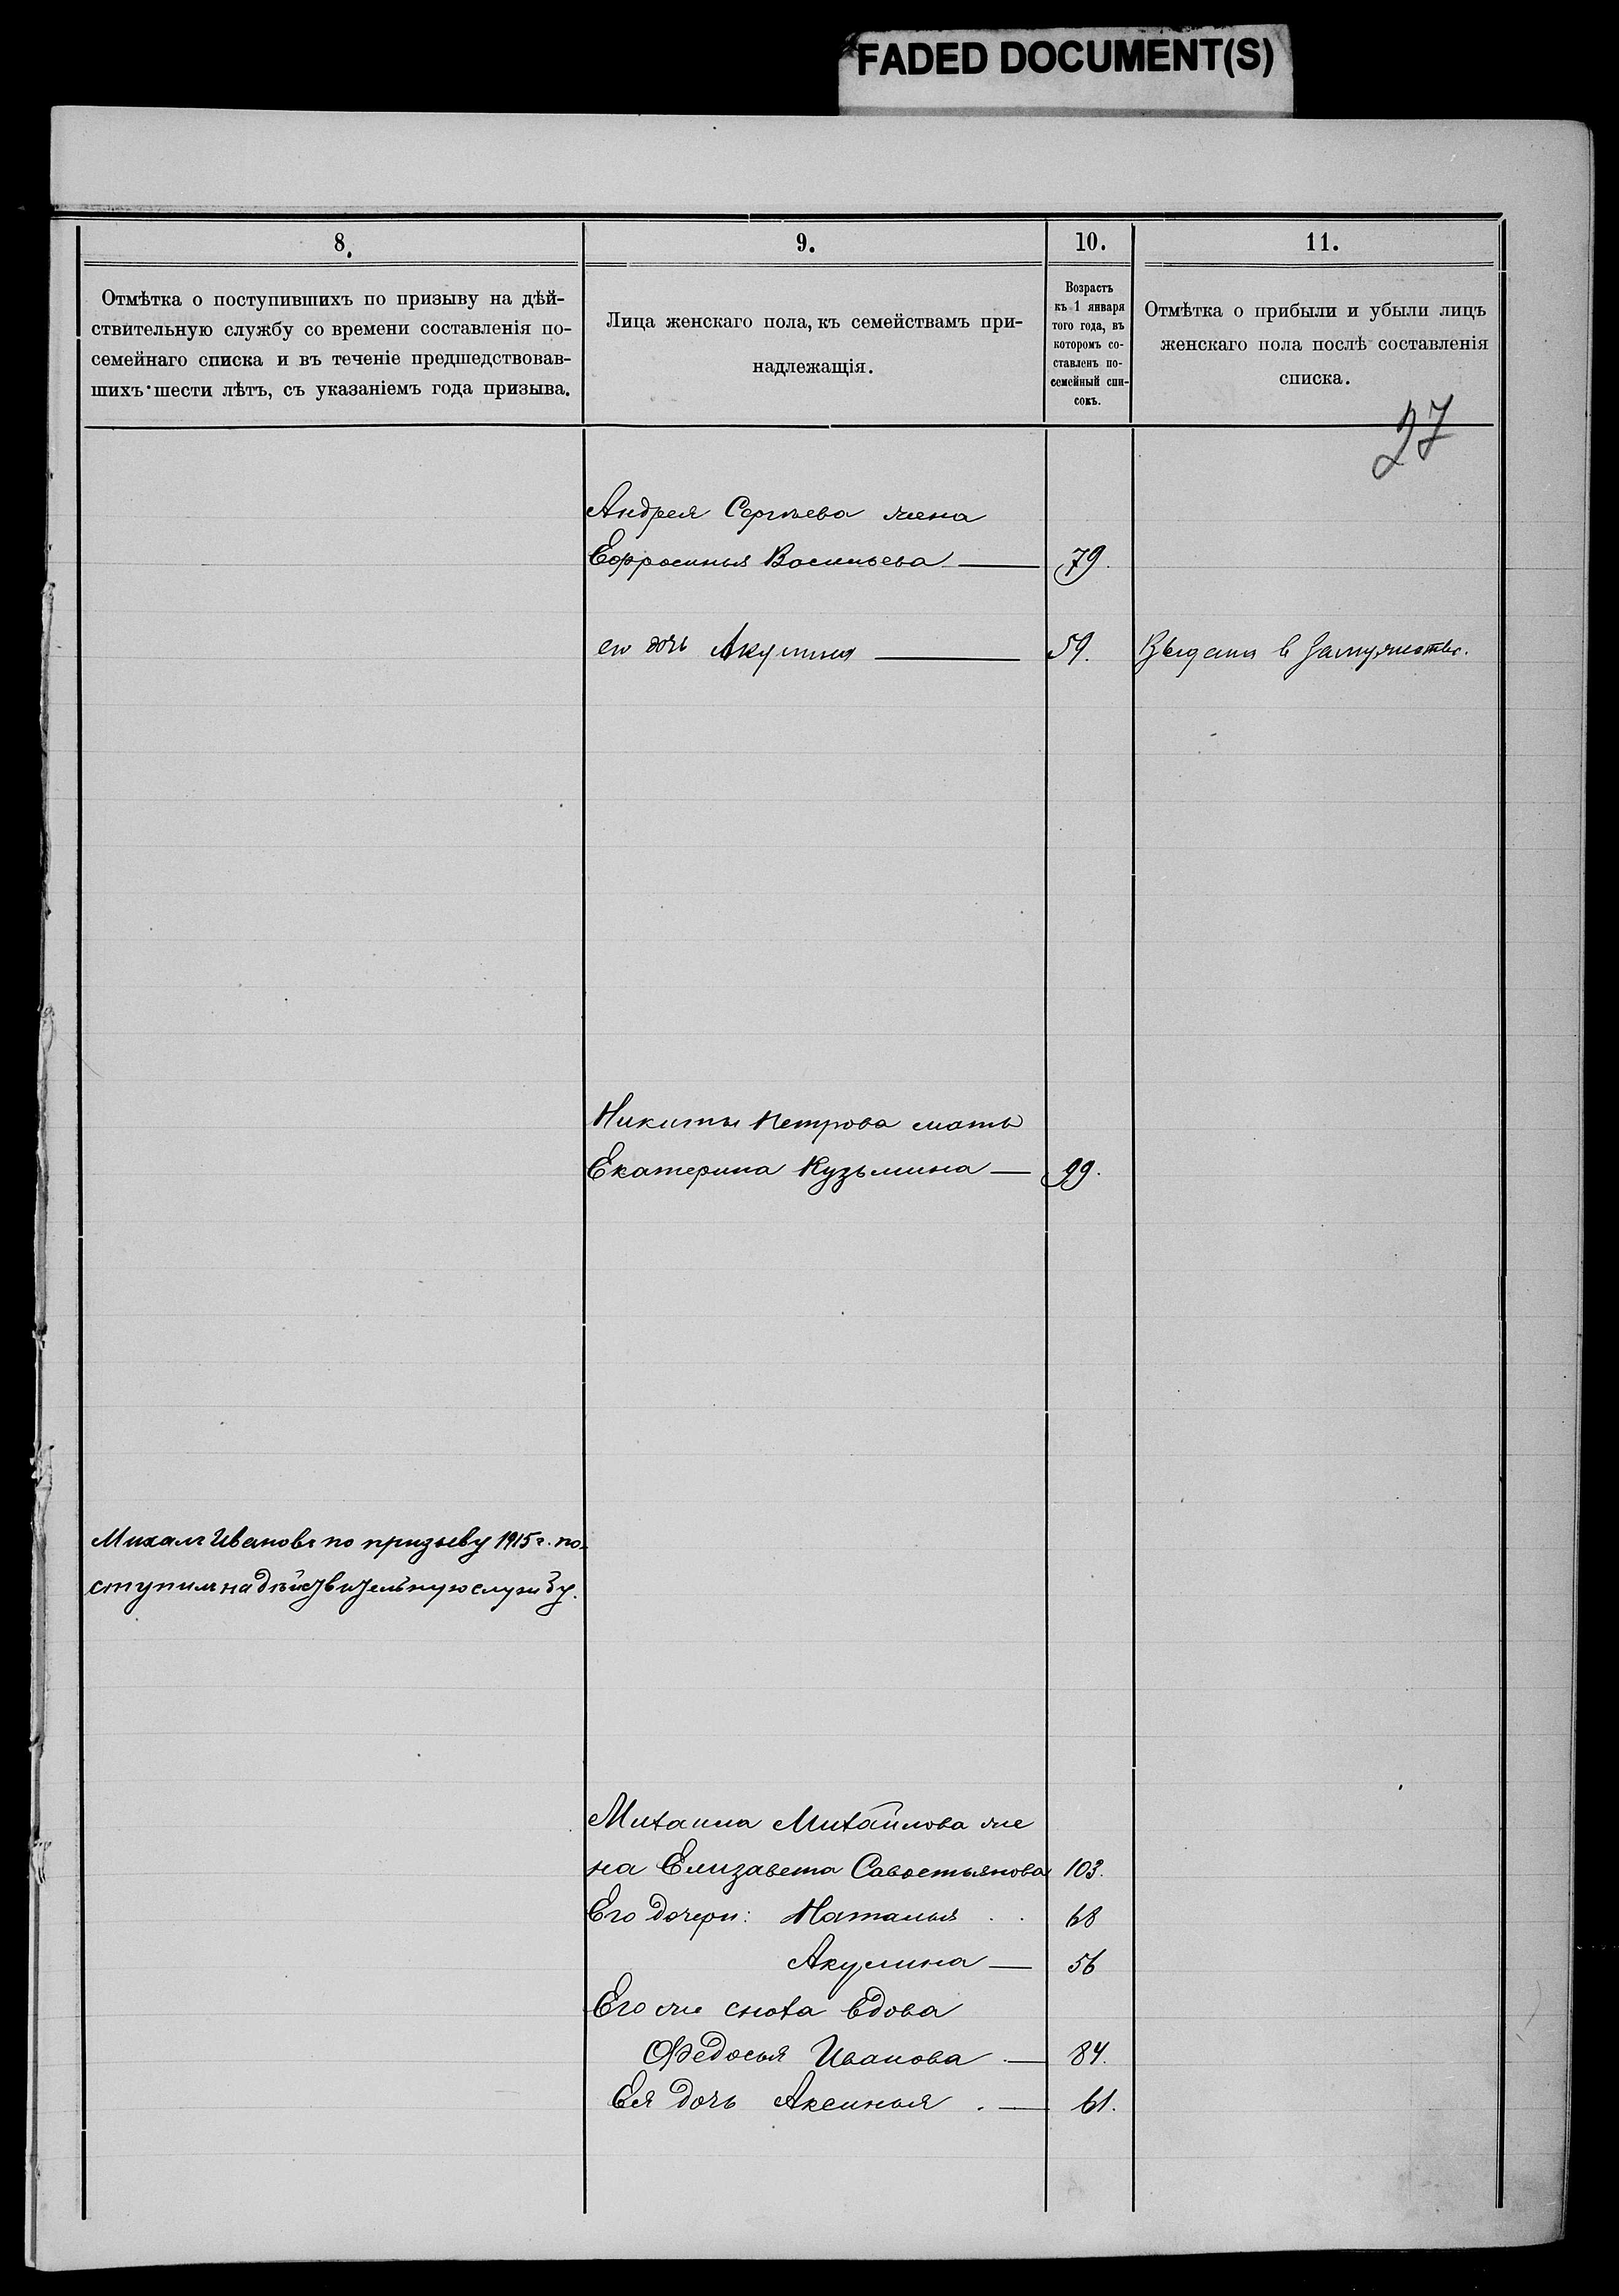 FADED DOCUMENT(S)
8.
9.
10.
11.
Отмѣтка о поступившихъ по призыву на дѣй-
ствительную службу со времени составленія по-
семейнаго списка и въ теченіе предшедствовав-
шихъ шести лѣтъ, съ указаніемъ года призыва.
Лица женскаго пола, къ семействамъ при-
надлежащія.
Возрастъ
къ 1 января
того года, въ
которомъ со-
ставленъ по-
семейный спи-
сокъ.
Отмѣтка о прибыли и убыли лицъ
женскаго пола послѣ составленія
списка.
27
Андрея Сергѣева жена
Ефросинья Васильева — 79.
его дочь Акулина — 59. Выдана в замужство.
Никиты Петрова мать
Екатерина Кузьмина — 99.
Михаил Ивановъ по призыву 1915 г. по-
ступилъ на дѣйствительную службу.
Михаила Михайлова же
на Елизавета Савостьянова 103.
Его дочери: Наталья . . 68
Акулина — 56
Его же сноха вдова
Федосья Иванова — 84.
Ея дочь Аксинья . — 61.